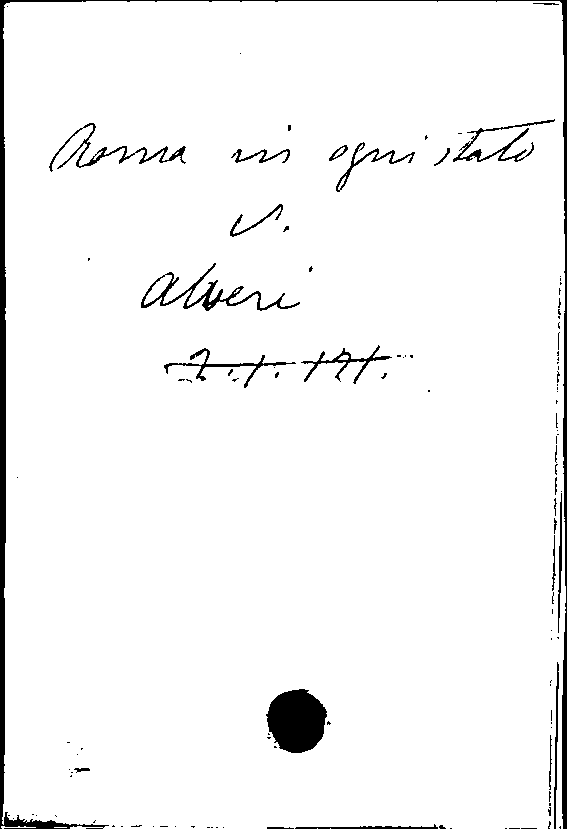 Roma in ogni stato
v.
Alveri
2.1.171.